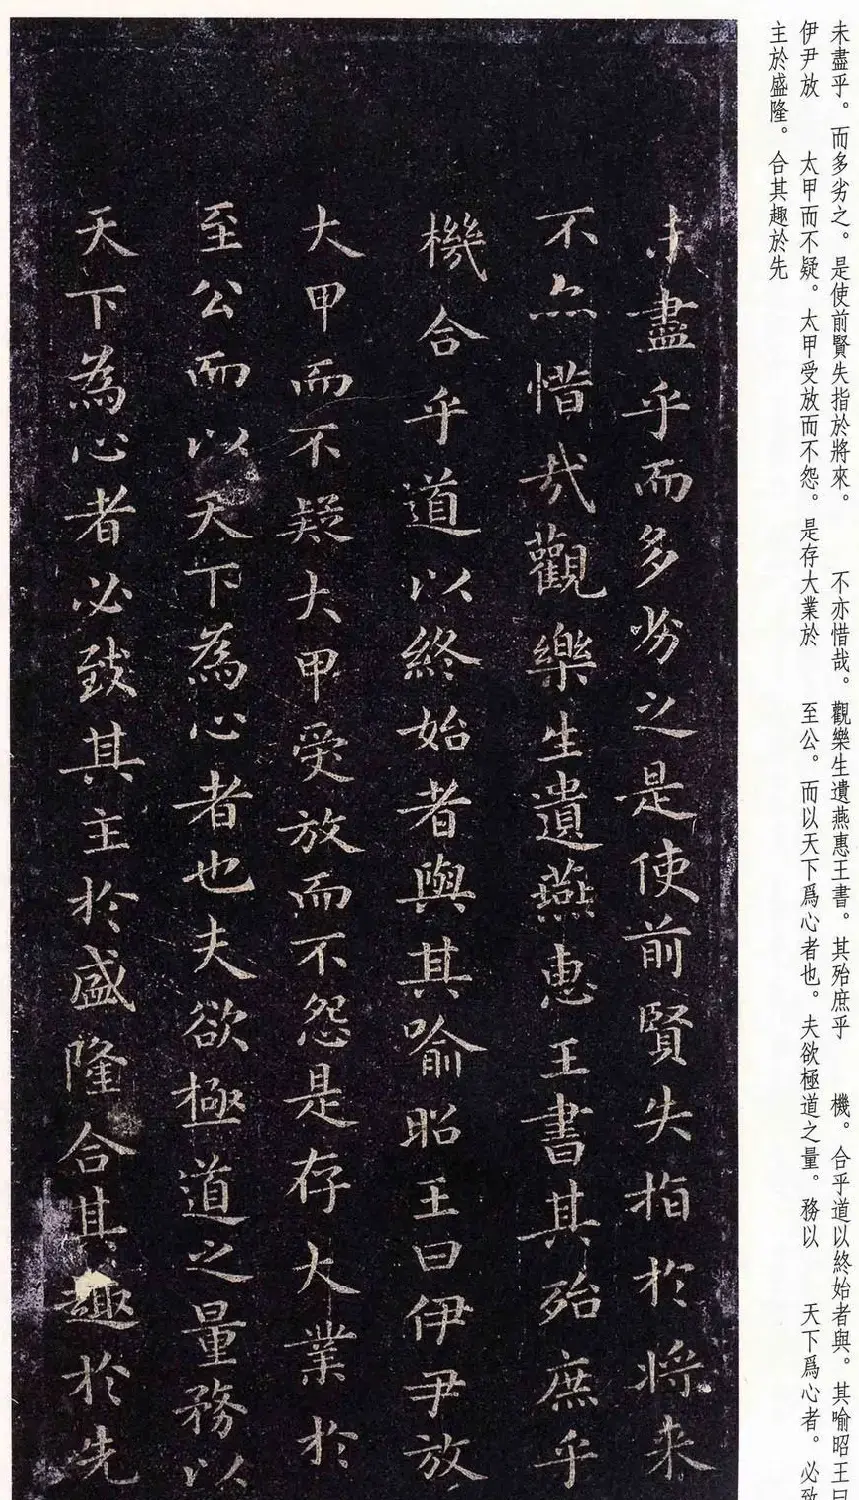 未盡乎。而多劣之。是使前賢失指於將來。 不亦惜哉。觀樂生遺燕惠王書。其殆庶乎 機。合乎道以終始者與。其喻昭王曰
伊尹放 太甲而不疑。太甲受放而不怨。是存大業於 至公。而以天下爲心者也。夫欲極道之量。務以 天下爲心者。必致
主於盛隆。合其趣於先
未盡乎而多劣之是使前賢失指於將来
不亦惜哉觀樂生遺燕惠王書其殆庶乎
機合乎道以終始者與其喻昭王曰伊尹放
大甲而不疑大甲受放而不怨是存大業於
至公而以天下為心者也夫欲極道之量務以
天下為心者必致其主於盛隆合其趣於先